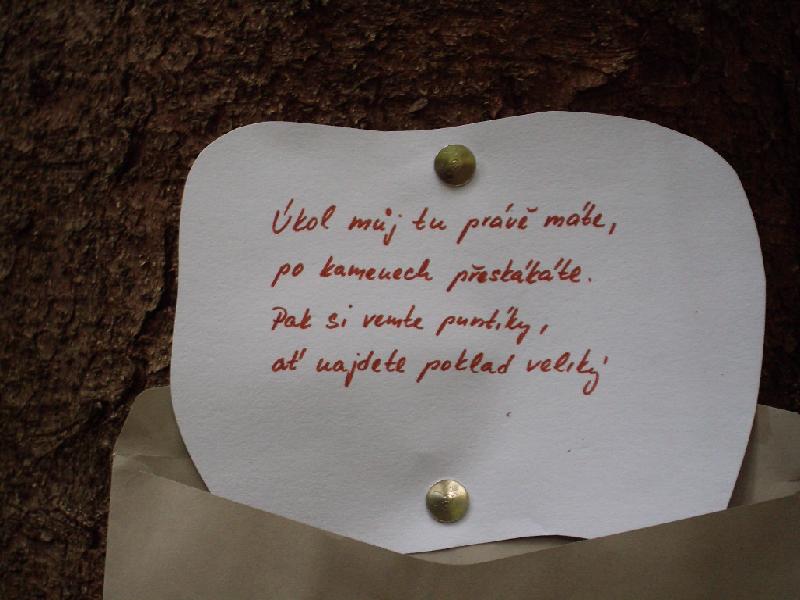 Úkol můj tu právě máte,
po kamenech přeskákáte.
Pak si vemte puntíky,
ať najdete poklad veliký